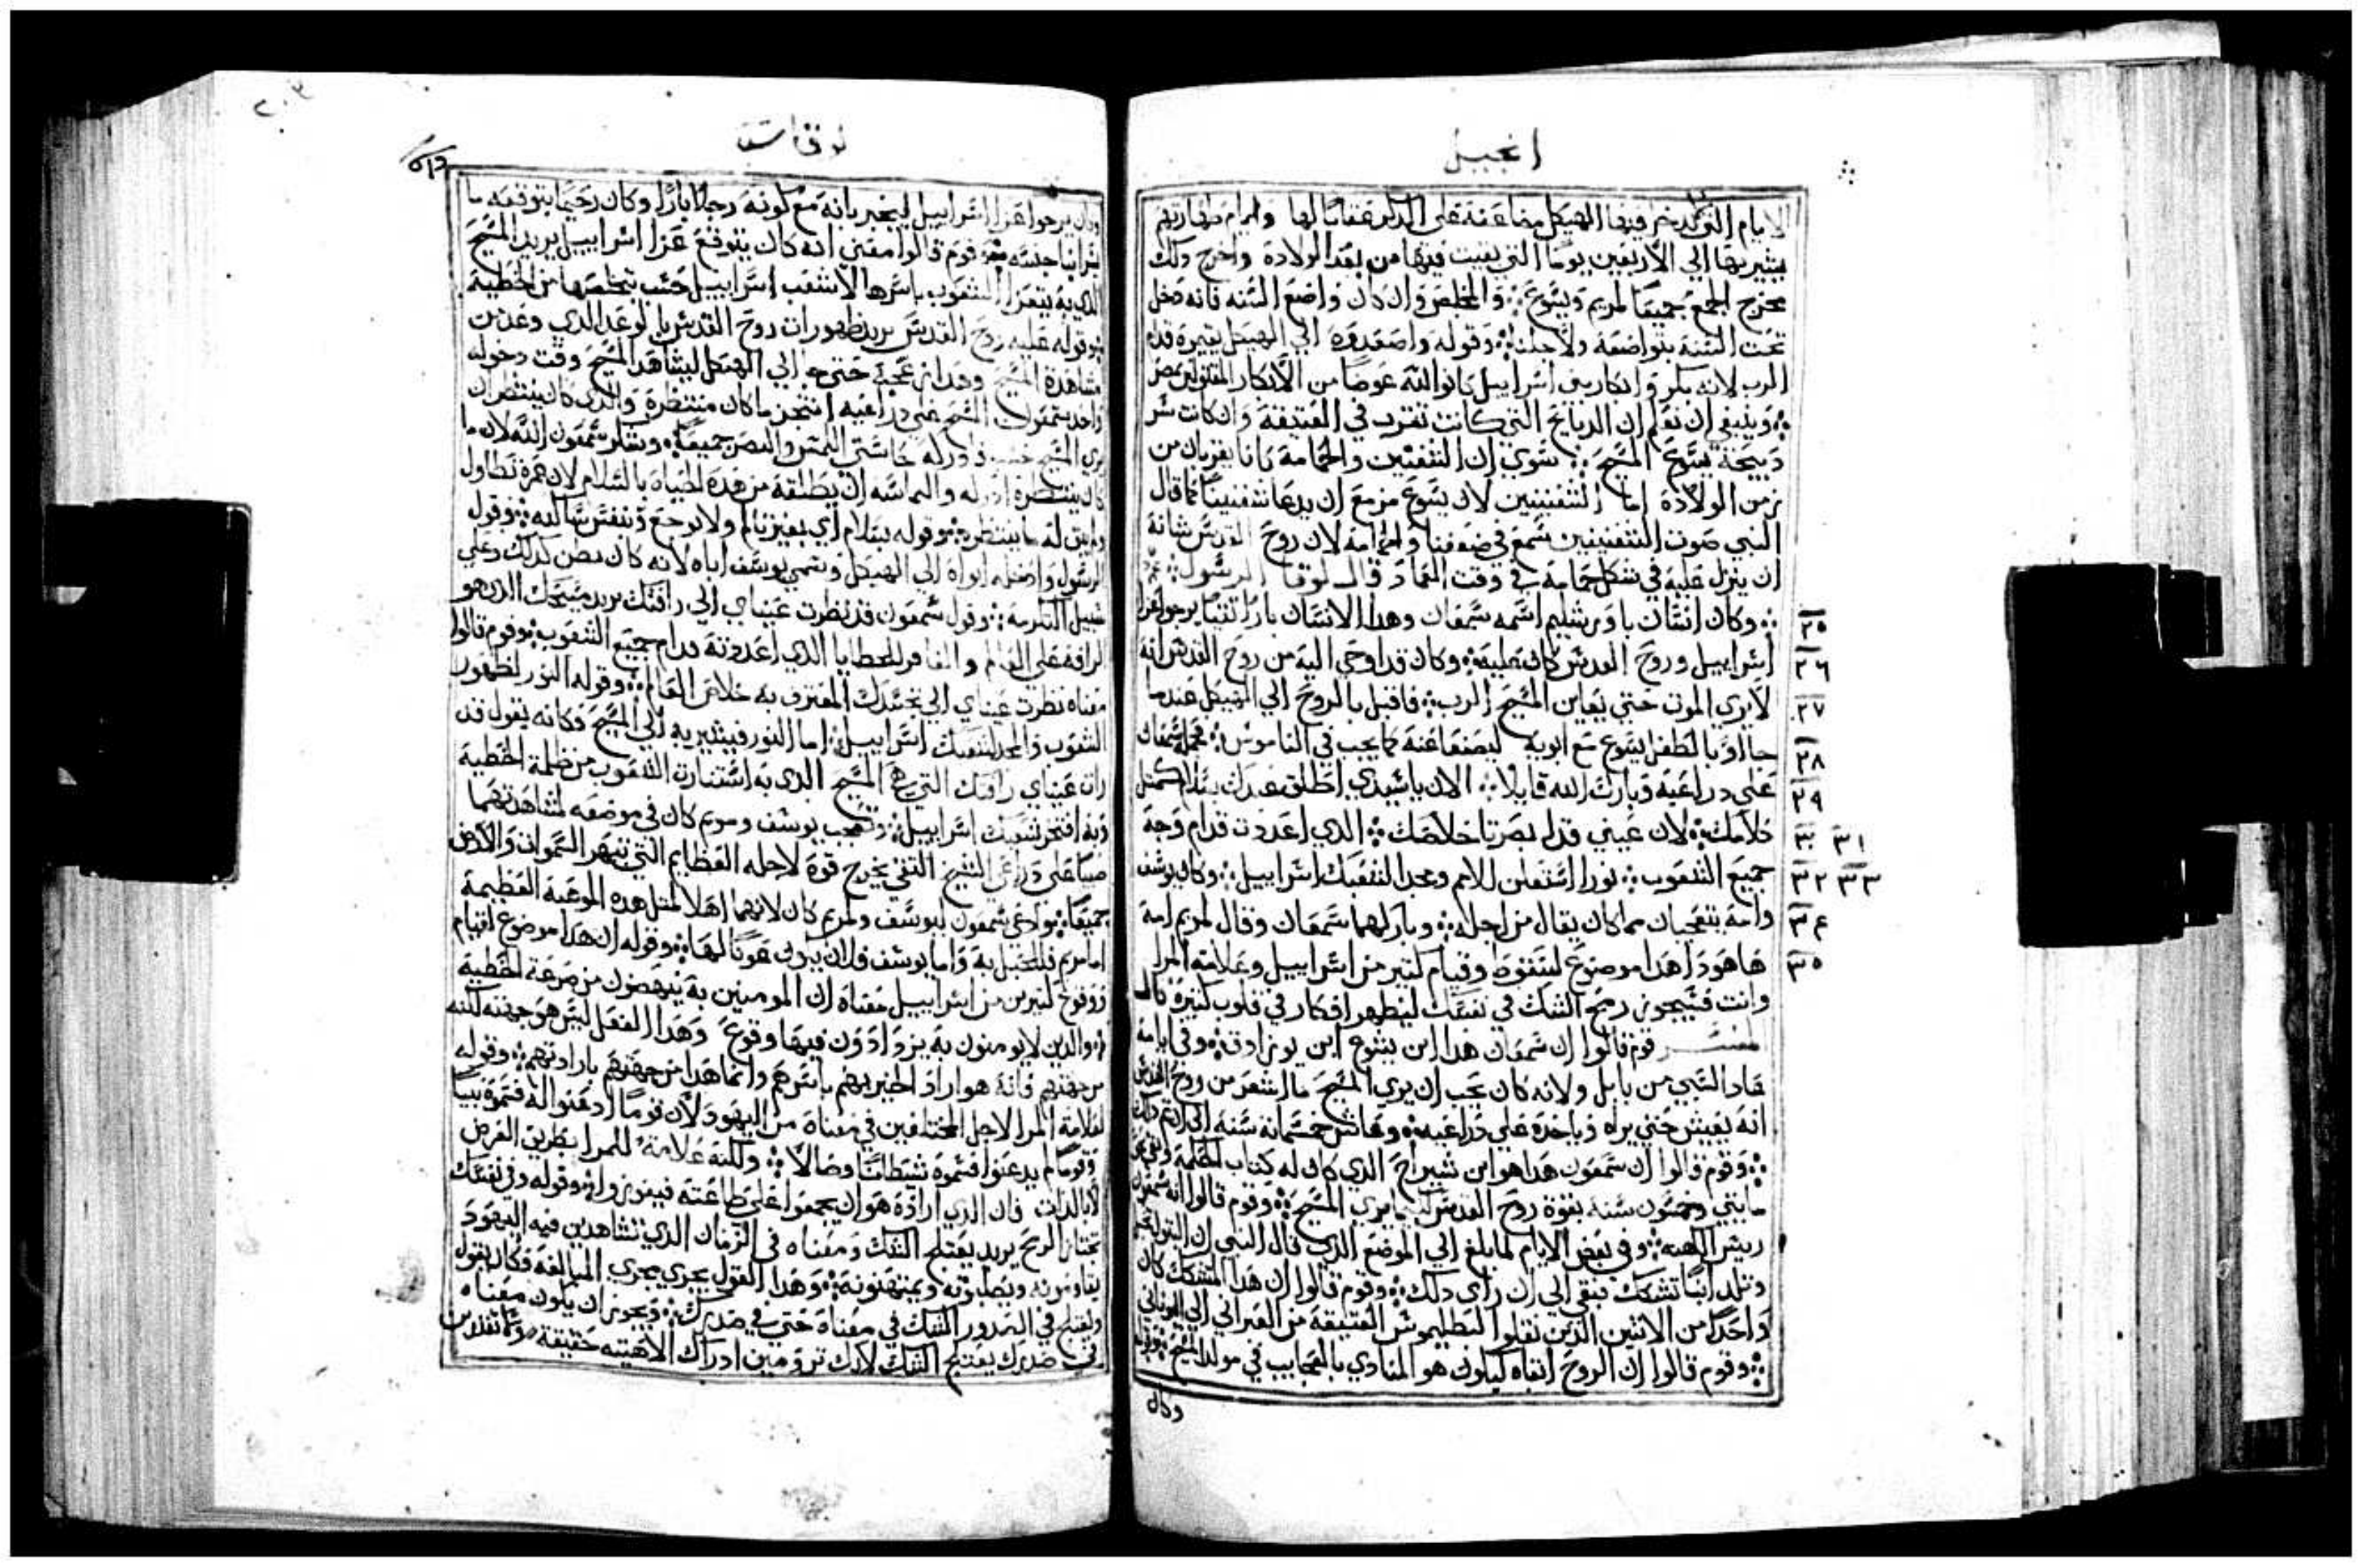 انجيل
الايام التي تدخر فيها الهيكل مضاعفة على الذكر عقابا لها وايام طهارتهم
يشير بها الي الاربعين يوما التي بقيت فيها من بعد الولادة واخرج ذلك
مخرج الجمع جميعا لمريم ويسوع والمخلص وان كان واضع السنه فانه دخل
تحت السنة بتواضعه ولاجلنا وقوله واصعدوه الي الهيكل
الرب لانه بكر وابكار بني اسراييل كانوا لله عوضا من الابكار المقتولين بمصر
وينبغي ان نعلم ان الدبايح التي كانت تقرب في العتيقة وان كانت سر
دبيحة يسوع المسيح سوي ان الشفنين والحمامة كانا يقربان من
زمن الولادة اما الشفنينين لان يسوع مزمع ان يدعا شفنينا كما قال
النبي صوت الشفنينين سمع في ضيعتنا والحمامة لان روح القدس شانه
ان ينزل عليه في شكل حمامة في وقت العماد قال لوقا الرسول
٢٥ وكان انسان باورشليم اسمه شمعان وهدا الانسان بارا تقيا يرجوا عزا
٢٦ اسراييل وروح القدس كان عليه وكان قد اوحي اليه من روح القدس انه
٢٧ لا يري الموت حتي يعاين المسيح الرب فاقبل بالروح الي الهيكل عندما
٢٨ جااوا بالطفل يسوع مع ابويه ليصنعا عنه كما يجب في الناموس فحمله شمعان
٢٩ علي دراعيه وبارك الله قايلا الان ياسيدي اطلق عبدك بسلام كمثل
٣٠ ٣١ كلامك لان عيني قد ابصرتا خلاصك الدي اعددت قدام وجه
٣٢ ٣٣ جميع الشعوب نورا استعلن للامم ومجدا لشعبك اسراييل وكان يوسف
٣٤ وامه يتعجبان مما كان يقال من اجله وباركهما شمعان وقال لمريم امه
٣٥ ها هودا هدا موضوع لسقوط وقيام كتير من اسراييل وعلامة المرا
وانت فسيجوز رمح الشك في نفسك ليظهر افكار في قلوب كتيرة قال
المفسر قوم قالوا ان شمعان هدا ابن يشوع ابن يوزادق وفي ايامه
عاد السبي من بابل ولانه كان يحب ان يري المسيح ما استشعر من روح القدس
انه يعيش حتي يراه وياخده علي دراعيه وعاش خمسماية سنه الي ان تم دلك
وقوم قالوا ان شمعون هدا هو ابن شيراخ الدي كان له كتاب الحكمة
مايتي وخمسون سنه بقوة روح القدس كيما يري المسيح وقوم قالوا انه شمعون
رييس الكهنه وفي بعض الايام لما بلغ الي الموضع الدي قال النبي ان البتوله
وتلد ابنا تشكك فبقي الي ان راي دلك وقوم قالوا ان هدا المتشكك كان
واحدا من الاثنين الدين نقلوا لبطليموس العتيقة من العبراني الي اليوناني
وقوم قالوا ان الروح ابقاه ليكون هو المنادي بالعجايب في مولد المسيح
وكان
لوقا
وكان يرجوا عزا اسراييل ليخبر بانه مع كونه رجلا بارا وكان رحيما يتوقعه ما
قوم قالوا معني انه كان يتوقع عزا اسراييل يريد المسيح
الدي به يتعزا الشعوب باسرها لا شعب اسراييل حسب بتخلصها من الخطية
وقوله عليه روح القدس يريد ظهورات روح القدس بالوعد الدي وعد من
مشاهدة المسيح وهدا من محبته حتي جا الي الهيكل ليشاهد المسيح وقت دخوله
واخد شمعون المسيح علي دراعيه انتجز ما كان منتظره والدي كان ينتظر ان
يري المسيح ادركه بحاستي اللمس والبصر جميعا وشكر شمعون الله لان ما
كان ينتظره ادركه والتماسه ان يطلقه من هده الحياة بالسلام لان عمره تطاول
ولم يبق له ما ينتظره وقوله بسلام اي بغير تالم ولا توجع ونفس ساكنه وقول
الرسول وادخله ابواه الي الهيكل وسمي يوسف اباه لانه كان يظن كدلك وعلي
سبيل التكرمة وقول شمعون قد نظرت عيناي الي رافتك يريد مسيحك الدي هو
الرافة علي العالم والغافر للخطايا الدي اعددته قدام جميع الشعوب وقوم قالوا
معناه نظرت عيناي الي تجسدك المعترف به خلاص العالم وقوله النور لظهور
الشعوب والمجد لشعبك اسراييل اما النور فيشير به الي المسيح فكانه يقول قد
رات عيناي رافتك التي هي المسيح الدي به استنارت الشعوب من ظلمة الخطية
وبه افتخر شعبك اسراييل وتعجب يوسف ومريم كان في موضعه لمشاهدتهما
صبيا علي دراعي الشيخ التقي يخرج قوة لاجله العظايم التي تبهر السموات والارض
جميعا ودعي شمعون ليوسف ولمريم كان لانهما اهلا لمثل هده الموهبة العظيمة
اما مريم فللحبل به واما يوسف فلان يكون عونا لها وقوله ان هدا موضوع لقيام
ووقوع كتيرين من اسراييل معناه ان المومنين به ينهضون من صرعة الخطية
والدين لا يومنون به يزدادون فيها وقوع وهدا الفعل ليس هو جهته لكنه
من جهتهم فانه هو اراد الخير بهم باسرهم وانما هدا من جهتهم بارادتهم وقوله
لعلامة المرا لاجل المختلفين في معناه من اليهود لان قوما ادعنوا له فسموه نبيا
وقوما لم يدعنوا فسموه شيطانا وضالا ولكنه علامة للمرا بطريق العرض
لا بالدات فان الدي اراده هو ان يجمعوا علي طاعته فيفوزوا وقوله وفي نفسك
تجتاز الرمح يريد يعتلج الشك ومعناه في الزمان الدي تشاهدين فيه اليهود
يقاومونه ويصلبونه ويمتهنونه وهدا القول يجري مجري المبالغة فكانه يقول
ويعتلج في الصدور الشك في معناه حتي في صدرك ويجوز ان يكون معناه
في صدرك يعتلج الشك لانك ترومين ادراك الاهيته حقيقة